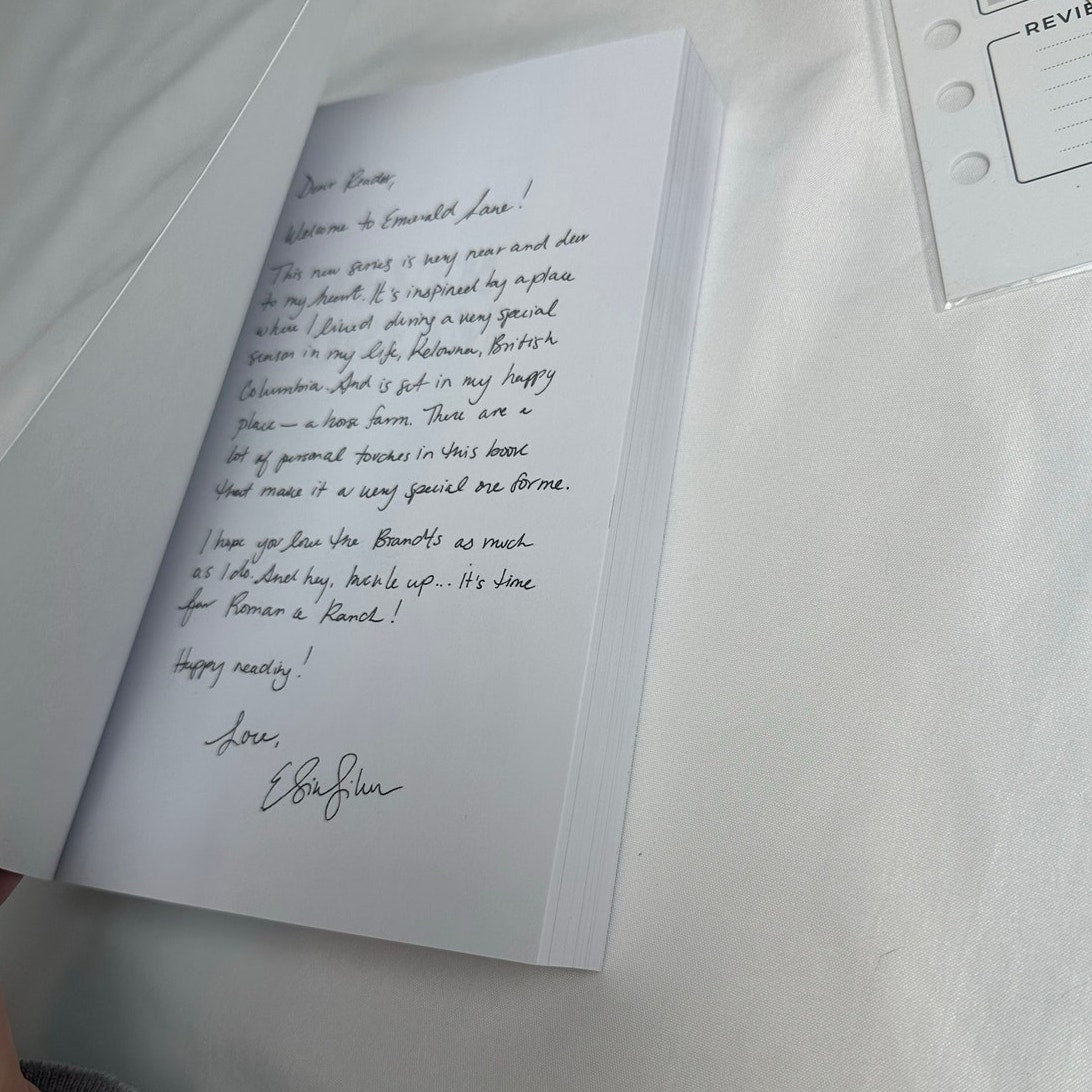 Dear Reader,
Welcome to Emerald Lane!
This new series is very near and dear
to my heart. It's inspired by a place
where I lived during a very special
season in my life, Kelowna, British
Columbia. And is set in my happy
place — a horse farm. There are a
lot of personal touches in this book
that make it a very special one for me.
I hope you love the Brandts as much
as I do. And hey, buckle up... it's time
for Roman a Ranch!
Happy reading!
Love,
Elsie Silver
REVIE